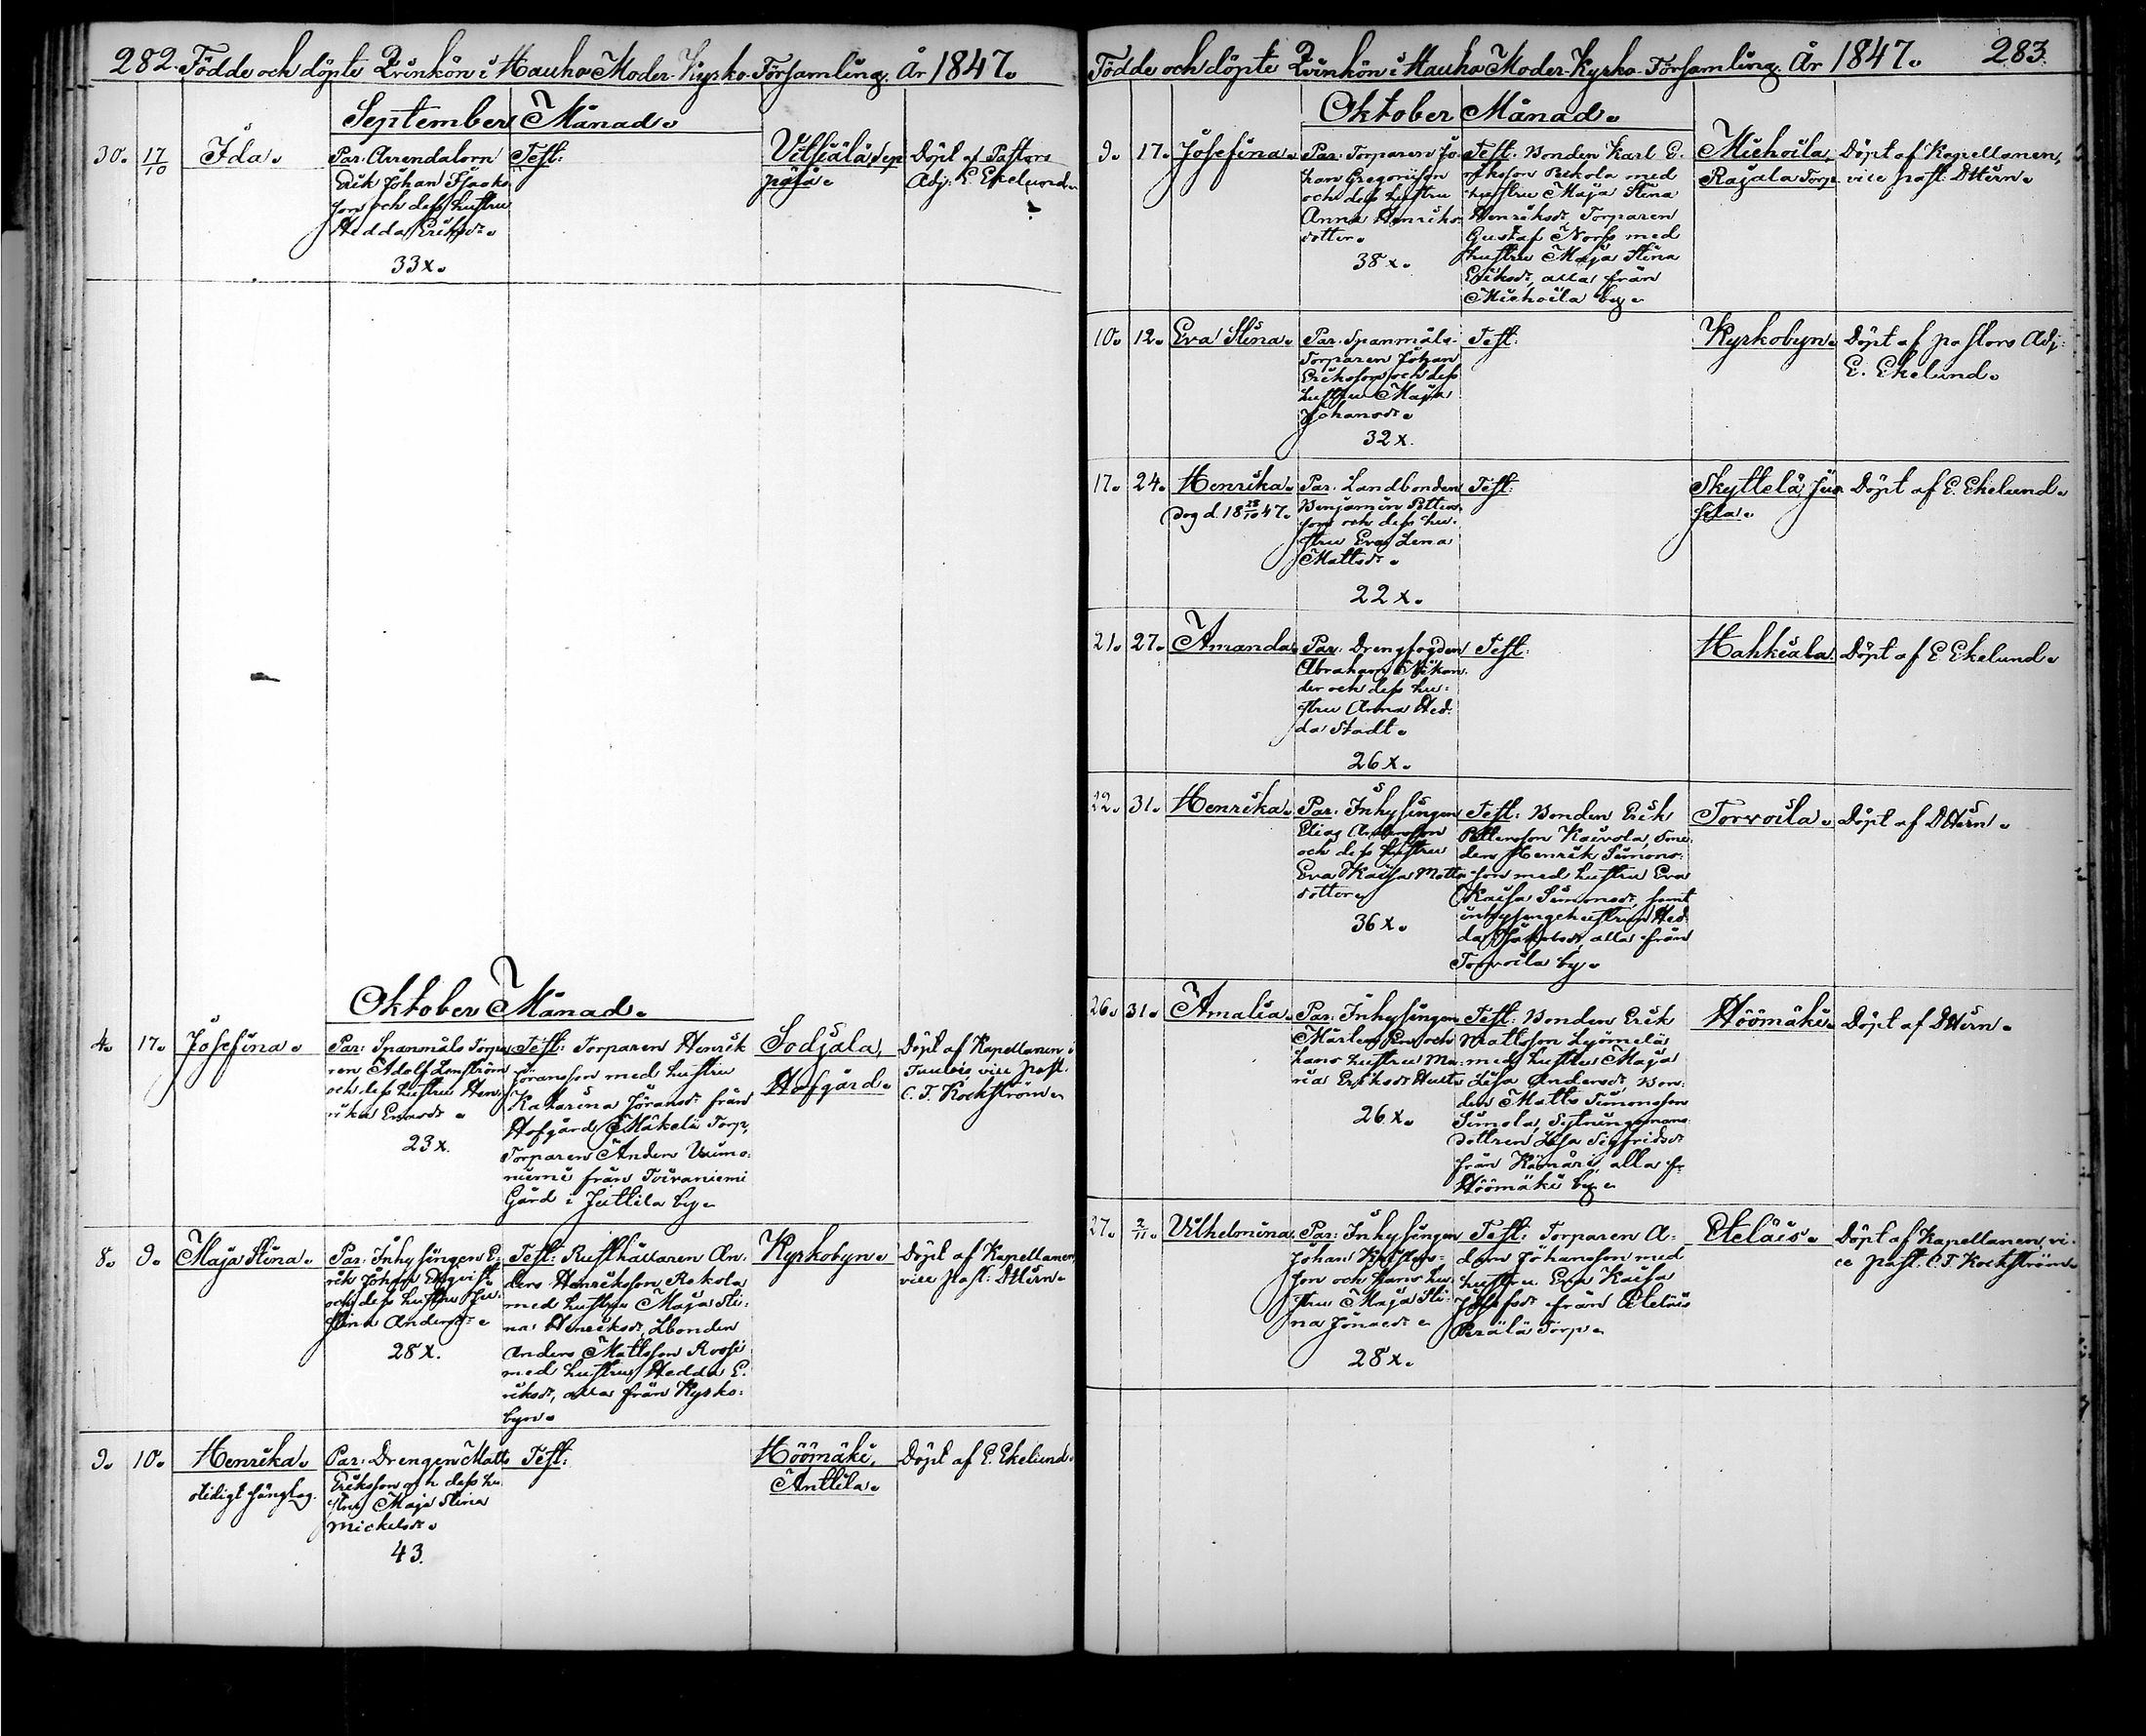 282. Födde och döpte Qvinkön i Hauho Moder-Kyrko-Församling. År 1847.
September Månad.
30. 17/10 Ida.
Par: Arrendatorn
Erik Johan Isaaks
son och dess hustru
Hedda Eriksdr.
33x.
Test:
Vitsiälä, Sep
päjä.
Döpt af Pastors
Adj: E. Ekelund.
Oktober Månad.
4. 17. Josefina.
Par: Spanmåls Torpa
ren Adolf Lenström
och dess hustru Hen
rika Enasdr.
23x.
Test: Torparen Henrik
Jöransson med hustru
Katarina Jöransdr från
Hofgård Mäkelä Torp,
Torparen Anders
niemi från Toivaniemi
Gård i Juttila by.
Sodjala,
Hofgård.
Döpt af Kapellanen i
Tuulois, vice past.
C. T. Kockström.
8. 9. Maja Stina.
Par: Inhysingen E-
rik Johan
och dess hustru Ju-
stina Andersdr.
28x.
Test: Rusthållaren An-
ders Henriksson Rekola
med hustru Maja Sti-
na Henriksdr, Lbonden
Anders Mattsson Roosi
med hustru Hedda E-
riksdr, alla från Kyrko-
byn.
Kyrkobyn.
Döpt af Kapellanen,
vice past: DHirn.
9. 10. Henrika.
otidigt sänglag.
Par: Drengen Matts
Eriksson och dess hu
stru Maja Stina
Mickelsdr.
43.
Test:
Höömäki,
Anttila.
Döpt af E. Ekelund.
Födde och döpte Qvinkön i Hauho Moder-Kyrko-Församling. År 1847. 283.
Oktober Månad.
9. 17. Josefina.
Par: Torparen Jo-
han Gregoriison
och dess hustru
Anna Henriks-
dotter.
38x.
Test: Bonden Karl E-
riksson Pekola med
hustru Maja Stina
Henriksdr, Torparen
Gustaf Norss med
hustru Maja Stina
Eriksdr, alla från
Miehoila by.
Miehoila,
Rajala Torp.
Döpt af Kapellanen,
vice past: DHirn.
10. 12. Eva Stina.
Par. Spanmåls-
Torparen Johan
Eriksson och dess
hustru Maja
Johansdr.
32x.
Test:
Kyrkobyn.
Döpt af pastors Adj:
E. Ekelund.
17. 24. Henrika.
dog d. 18 28/10 47.
Par. Landbonden
Benjamin Petters-
son och dess hu-
stru Eva Lena
Mattsdr.
22x.
Test:
Skyttelä, Jus
sila.
Döpt af E. Ekelund.
21. 27. Amanda.
Par: Drengfogden
Abraham Nikan-
der och dess hu-
stru Anna Hed-
da Stadt.
26x.
Test:
Hahkiala.
Döpt af E Ekelund.
22. 31. Henrika.
Par: Inhysingen
Elias Andersson
och dess hustru
Eva Kaisa Matts
dotter.
36x.
Test: Bonden Erik
Pettersson Kaivola, Sme-
den Henrik Simons-
son med hustru Eva
Kaisa Simonsdr, samt
inhysingehustrun Hed-
da Jakobsdr, alla från
Torvoila by.
Torvoila.
Döpt af DHirn.
26. 31. Amalia.
Par: Inhysingen
Mårten och
hans hustru Ma-
ria Eriksdr
26x.
Test: Bonden Erik
Mattsson Lyömelä
med hustru Maja
Lisa Andersdr, Bon-
den Matts Simonsson
Simola, Sytningsmans
dottren Lisa Sigfridsdr
från alla fr
Höömäki by.
Höömäki.
Döpt af DHirn.
27. 2/11 Vilhelmina.
Par: Inhysingen
Johan
son och hans hu-
stru Maja Sti-
na Jonaedr.
28x.
Test: Torparen A-
dam Johansson med
hustru Eva Kaisa
Josefsdr från Eteläis
Perälä Torp.
Eteläis.
Döpt af Kapellanen, vi-
ce past. C. T. Kockström.